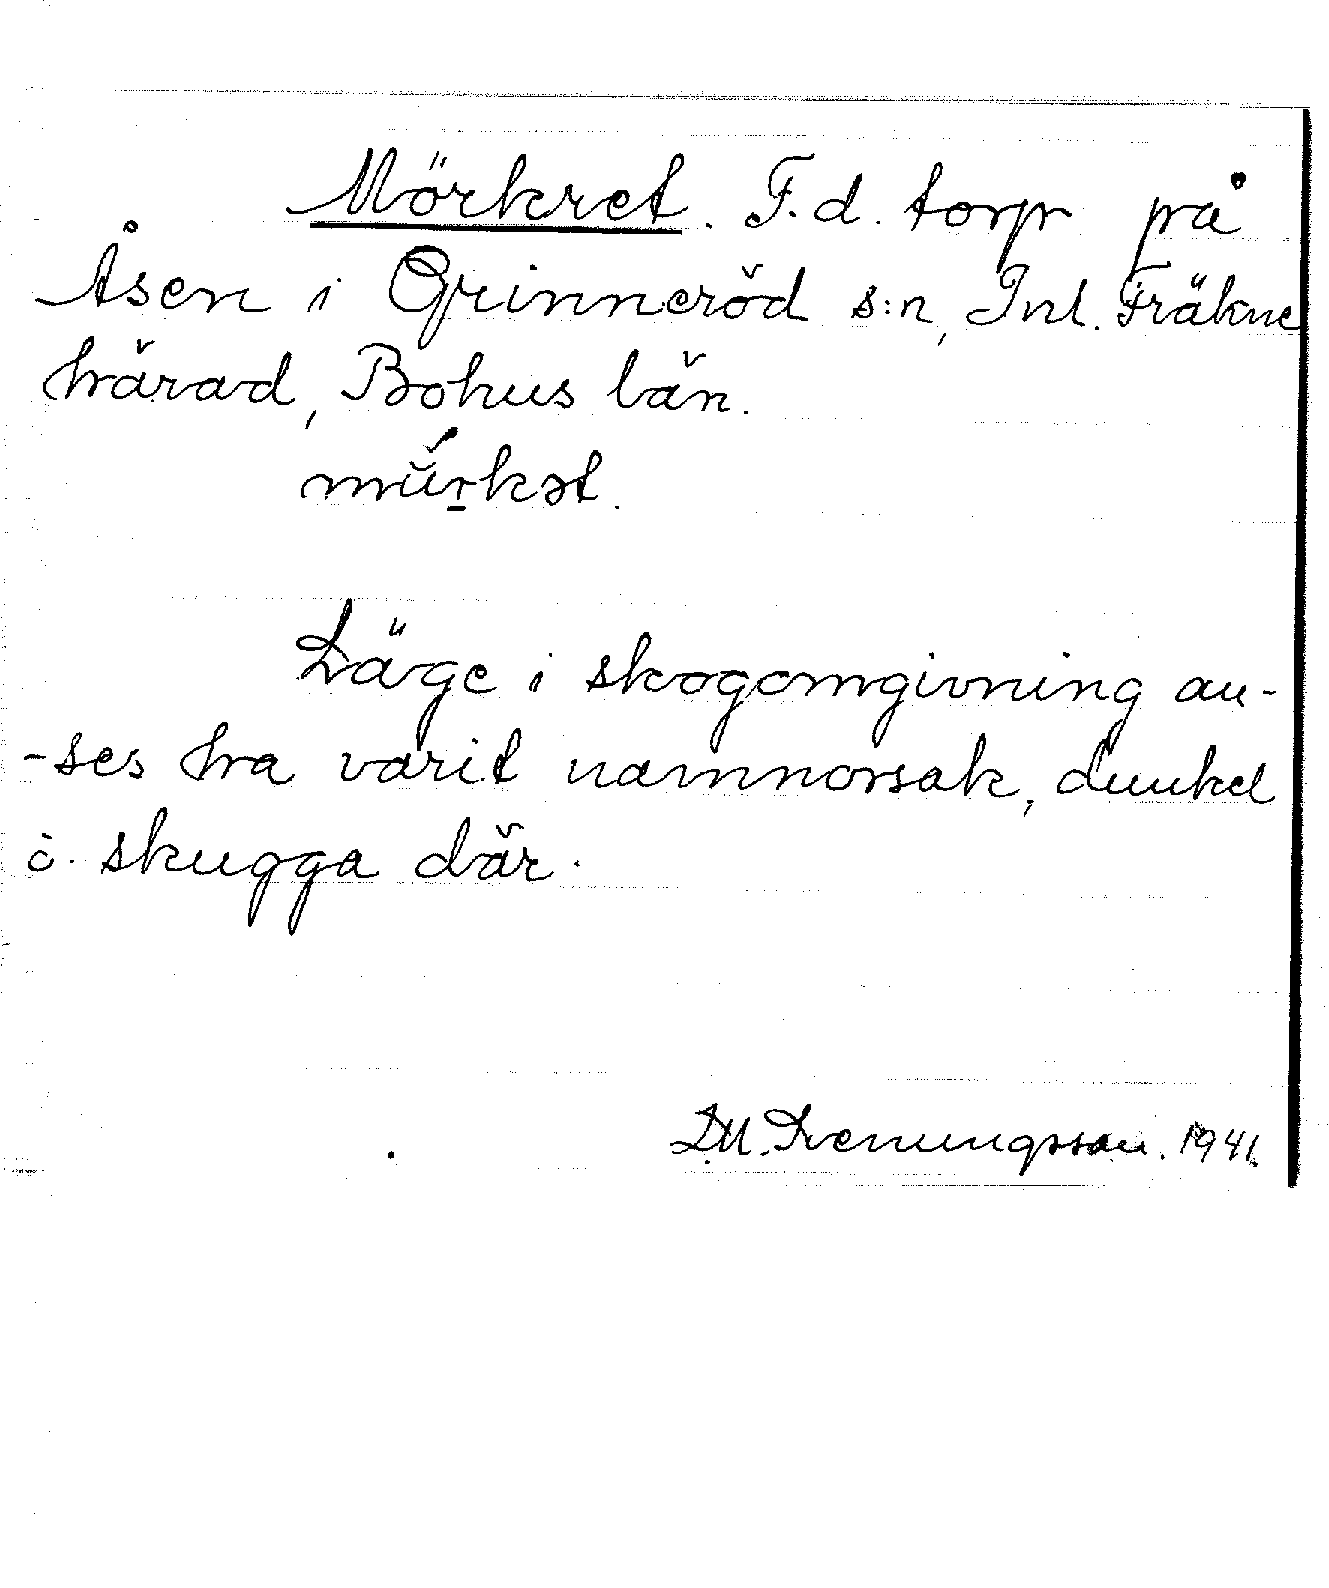 Mörkret. F.d. torp på
Åsen i Grinneröd s:n, Inl. Fräkne
härad, Bohus län.
mu̇̆rkət.
Läge i skogomgivning an-
-ses ha varit namnorsak, dunkel
o. skugga där.
D.M. Svenungsson. 1941.